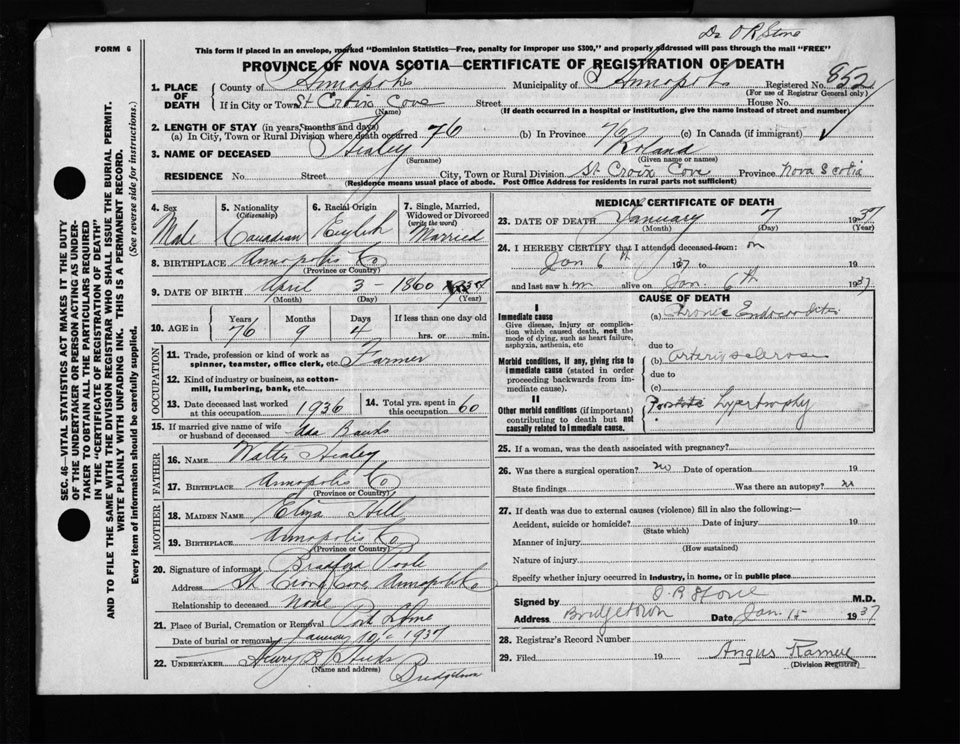 Dr O R Stone
FORM 6
This form if placed in an envelope, marked "Dominion Statistics—Free, penalty for improper use $300," and properly addressed will pass through the mail "FREE"
PROVINCE OF NOVA SCOTIA—CERTIFICATE OF REGISTRATION OF DEATH
SEC. 46—VITAL STATISTICS ACT MAKES IT THE DUTY
OF THE UNDERTAKER OR PERSON ACTING AS UNDER-
TAKER TO OBTAIN ALL THE PARTICULARS REQUIRED
IN THE "CERTIFICATE OF REGISTRATION OF DEATH"
AND TO FILE THE SAME WITH THE DIVISION REGISTRAR WHO SHALL ISSUE THE BURIAL PERMIT.
WRITE PLAINLY WITH UNFADING INK. THIS IS A PERMANENT RECORD.
Every item of information should be carefully supplied. (See reverse side for instructions.)
1. PLACE OF DEATH County of Annapolis Municipality of Annapolis Registered No. 852
(For use of Registrar General only)
If in City or Town St Croix Cove Street House No.
(Name) (If death occurred in a hospital or institution, give the name instead of street and number)
2. LENGTH OF STAY (in years, months and days)
(a) In City, Town or Rural Division where death occurred 76 (b) In Province 76 (c) In Canada (if immigrant)
3. NAME OF DECEASED Healey Roland
(Surname) (Given name or names)
RESIDENCE No. Street City, Town or Rural Division St. Croix Cove Province Nova Scotia
(Residence means usual place of abode. Post Office Address for residents in rural parts not sufficient)
4. Sex Male
5. Nationality (Citizenship) Canadian
6. Racial Origin English
7. Single, Married, Widowed or Divorced (write the word) Married
8. BIRTHPLACE Annapolis Co
(Province or Country)
9. DATE OF BIRTH April 3 - 1860
(Month) (Day) (Year)
10. AGE in Years 76 Months 9 Days 4 If less than one day old hrs. or min.
OCCUPATION
11. Trade, profession or kind of work as spinner, teamster, office clerk, etc. Farmer
12. Kind of industry or business, as cotton-mill, lumbering, bank, etc.
13. Date deceased last worked at this occupation 1936 14. Total yrs. spent in this occupation 60
15. If married give name of wife or husband of deceased Ada Banks
FATHER
16. NAME Walter Healey
17. BIRTHPLACE Annapolis Co
(Province or Country)
MOTHER
18. MAIDEN NAME Eliza Hill
19. BIRTHPLACE Annapolis Co
(Province or Country)
20. Signature of informant Bradford Poole
Address St Croix Cove Annapolis Co
Relationship to deceased None
21. Place of Burial, Cremation or Removal Port Lorne
Date of burial or removal January 10, 1937
22. UNDERTAKER Henry B Hicks
(Name and address) Bridgetown
MEDICAL CERTIFICATE OF DEATH
23. DATE OF DEATH January 7 1937
(Month) (Day) (Year)
24. I HEREBY CERTIFY that I attended deceased from: on
Jan 6th 1937 to 19
and last saw him alive on Jan. 6th 1937
CAUSE OF DEATH
I
Immediate cause
Give disease, injury or complication which caused death, not the mode of dying, such as heart failure, asphyxia, asthenia, etc
(a) Chronic Endocarditis
due to
Morbid conditions, if any, giving rise to immediate cause (stated in order proceeding backwards from immediate cause).
(b) arteriosclerosis
due to
(c)
II
Other morbid conditions (if important) contributing to death but not causally related to Immediate cause.
Prostate Hypertrophy
25. If a woman, was the death associated with pregnancy?
26. Was there a surgical operation? no Date of operation 19
State findings Was there an autopsy? no
27. If death was due to external causes (violence) fill in also the following:—
Accident, suicide or homicide? Date of injury 19
(State which)
Manner of injury
(How sustained)
Nature of injury
Specify whether injury occurred in industry, in home, or in public place
Signed by O. R Stone M.D.
Address Bridgetown Date Jan. 15 1937
28. Registrar's Record Number
29. Filed 19 Angus
(Division Registrar)